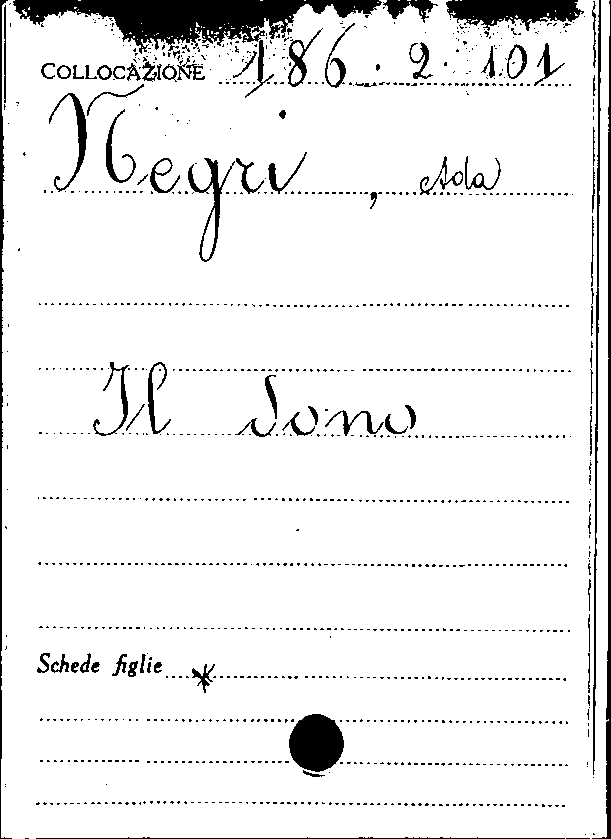 COLLOCAZIONE 186.2.101
Negri, Ada
Il Dono
Schede figlie *